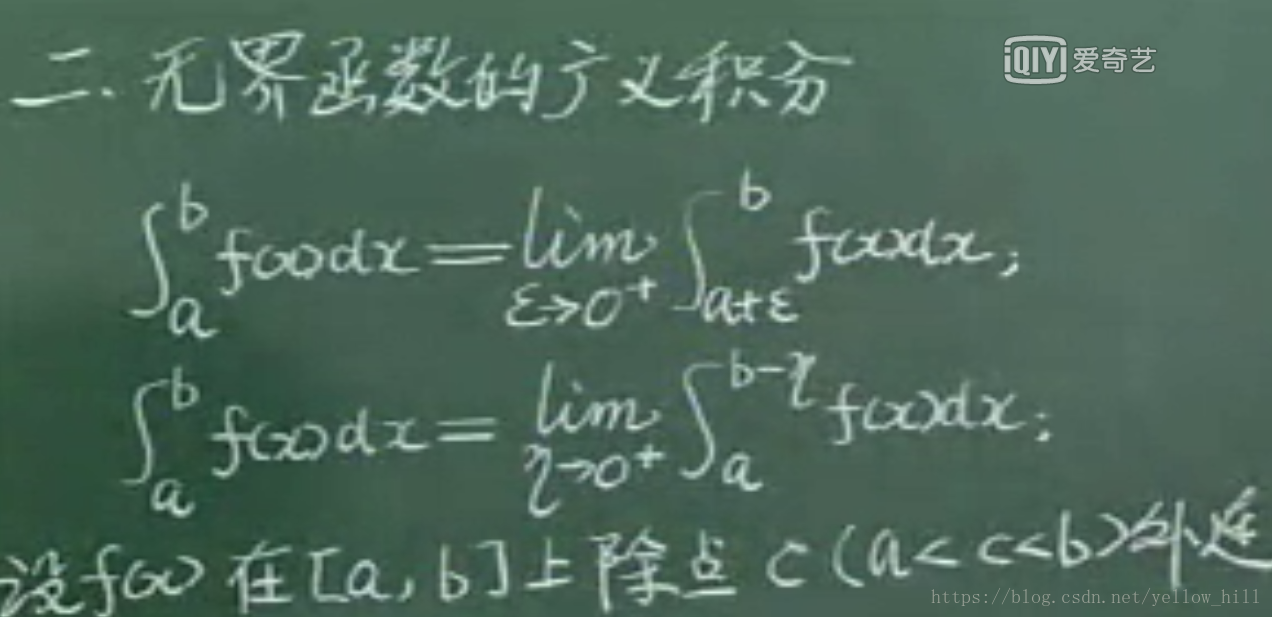 二.无界函数的广义积分
iQIYI 爱奇艺
∫_a^b f(x)dx = lim_{ε→0⁺} ∫_{a+ε}^b f(x)dx;
∫_a^b f(x)dx = lim_{η→0⁺} ∫_a^{b-η} f(x)dx;
设f(x)在[a,b]上除点c(a<c<b)外连
https://blog.csdn.net/yellow_hill